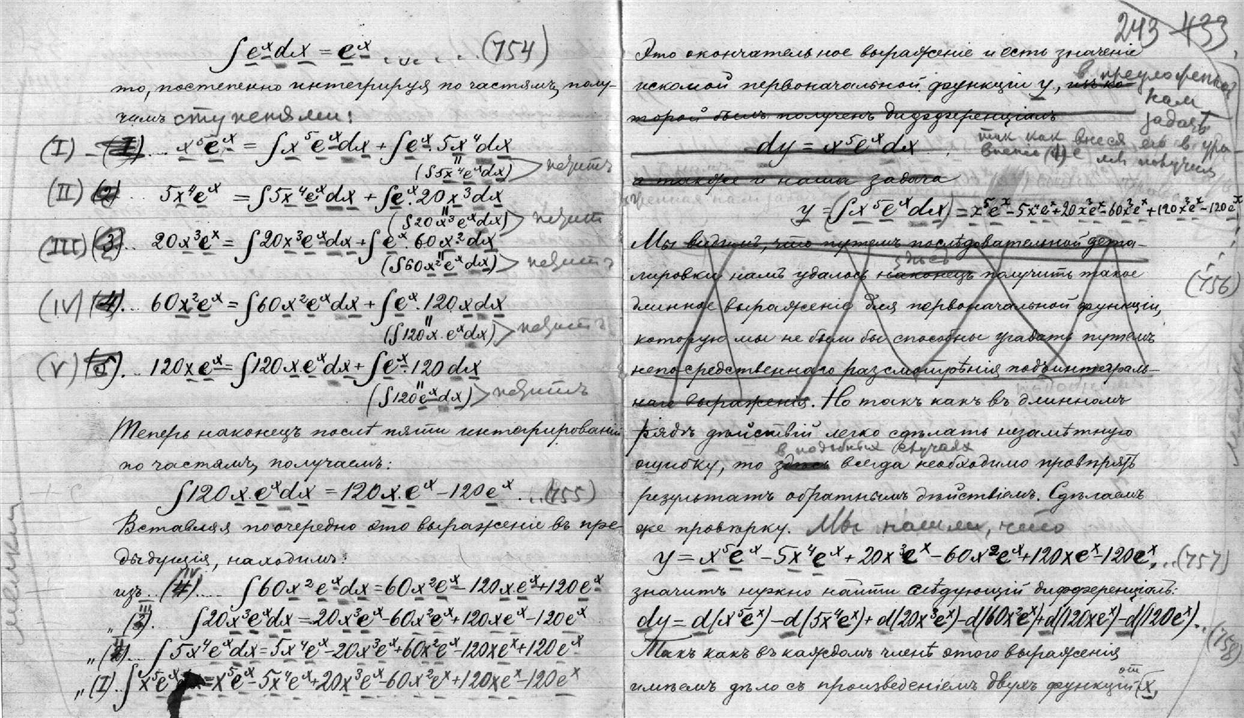 ∫eˣdx = eˣ ........ (754)
то, постепенно интегрируя по частямъ, полу-
чимъ ступенями:
(I) (1)... x⁵eˣ = ∫x⁵eˣdx + ∫eˣ.5x⁴dx
(∫5x⁴eˣdx)
(II) (2) 5x⁴eˣ = ∫5x⁴eˣdx + ∫eˣ.20x³dx
(∫20x³eˣdx)
(III) (3). 20x³eˣ = ∫20x³eˣdx + ∫eˣ 60x²dx
(∫60x²eˣdx)
(IV) (4)... 60x²eˣ = ∫60x²eˣdx + ∫eˣ.120xdx
(∫120x.eˣdx)
(V) (5)... 120xeˣ = ∫120xeˣdx + ∫eˣ120dx
(∫120eˣdx)
Теперь наконецъ послѣ пяти интегрированій
по частямъ, получаемъ:
∫120x.eˣdx = 120x.eˣ - 120eˣ ...(755)
Вставляя поочередно это выраженіе въ пре-
дыдущія, находимъ:
изъ.. (IV)..... ∫60x²eˣdx = 60x²eˣ - 120xeˣ + 120eˣ
„ (III) ∫20x³eˣdx = 20x³eˣ - 60x²eˣ + 120xeˣ - 120eˣ
„ (II).. ∫5x⁴eˣdx = 5x⁴eˣ - 20x³eˣ + 60x²eˣ - 120xeˣ + 120eˣ
„ (I).. ∫x⁵eˣ = x⁵eˣ - 5x⁴eˣ + 20x³eˣ - 60x²eˣ + 120xeˣ - 120eˣ
мелкий
243 433
Это окончательное выраженіе и есть значеніе
искомой первоначальной функціи y, изъ ко-
въ предложенной
намъ
задачѣ
торой былъ полученъ дифференціалъ
такъ какъ внеся его въ ура
dy = x⁵eˣ dx
внение (4) е мы получим
а также и наша задача
y = (∫x⁵eˣdx) = x⁵eˣ - 5x⁴eˣ + 20x³eˣ - 60x²eˣ + 120xeˣ - 120eˣ
(756)
Мы видимъ, что путемъ послѣдовательной дета-
здесь
лировки намъ удалось наконецъ получить такое
длинное выраженіе для первоначальной функціи,
которую мы не были бы способны угадать путемъ
непосредственнаго разсмотрѣнія подъинтеграль-
наго выраженія. Но такъ какъ въ длинномъ
рядѣ дѣйствій легко сдѣлать незамѣтную
в подобных случаях
ошибку, то здѣсь всегда необходимо провѣрять
результатъ обратнымъ дѣйствіемъ. Сдѣлаемъ
же провѣрку. Мы нашли, что
y = x⁵eˣ - 5x⁴eˣ + 20x³eˣ - 60x²eˣ + 120xeˣ - 120eˣ...(757)
значитъ нужно найти слѣдующій дифференціалъ:
dy = d(x⁵eˣ) - d(5x⁴eˣ) + d(20x³eˣ) - d(60x²eˣ) + d(120xeˣ) - d(120eˣ)...(758)
Такъ какъ въ каждомъ членѣ этого выраженія
имѣемъ дѣло съ произведеніемъ двухъ функцій от x,